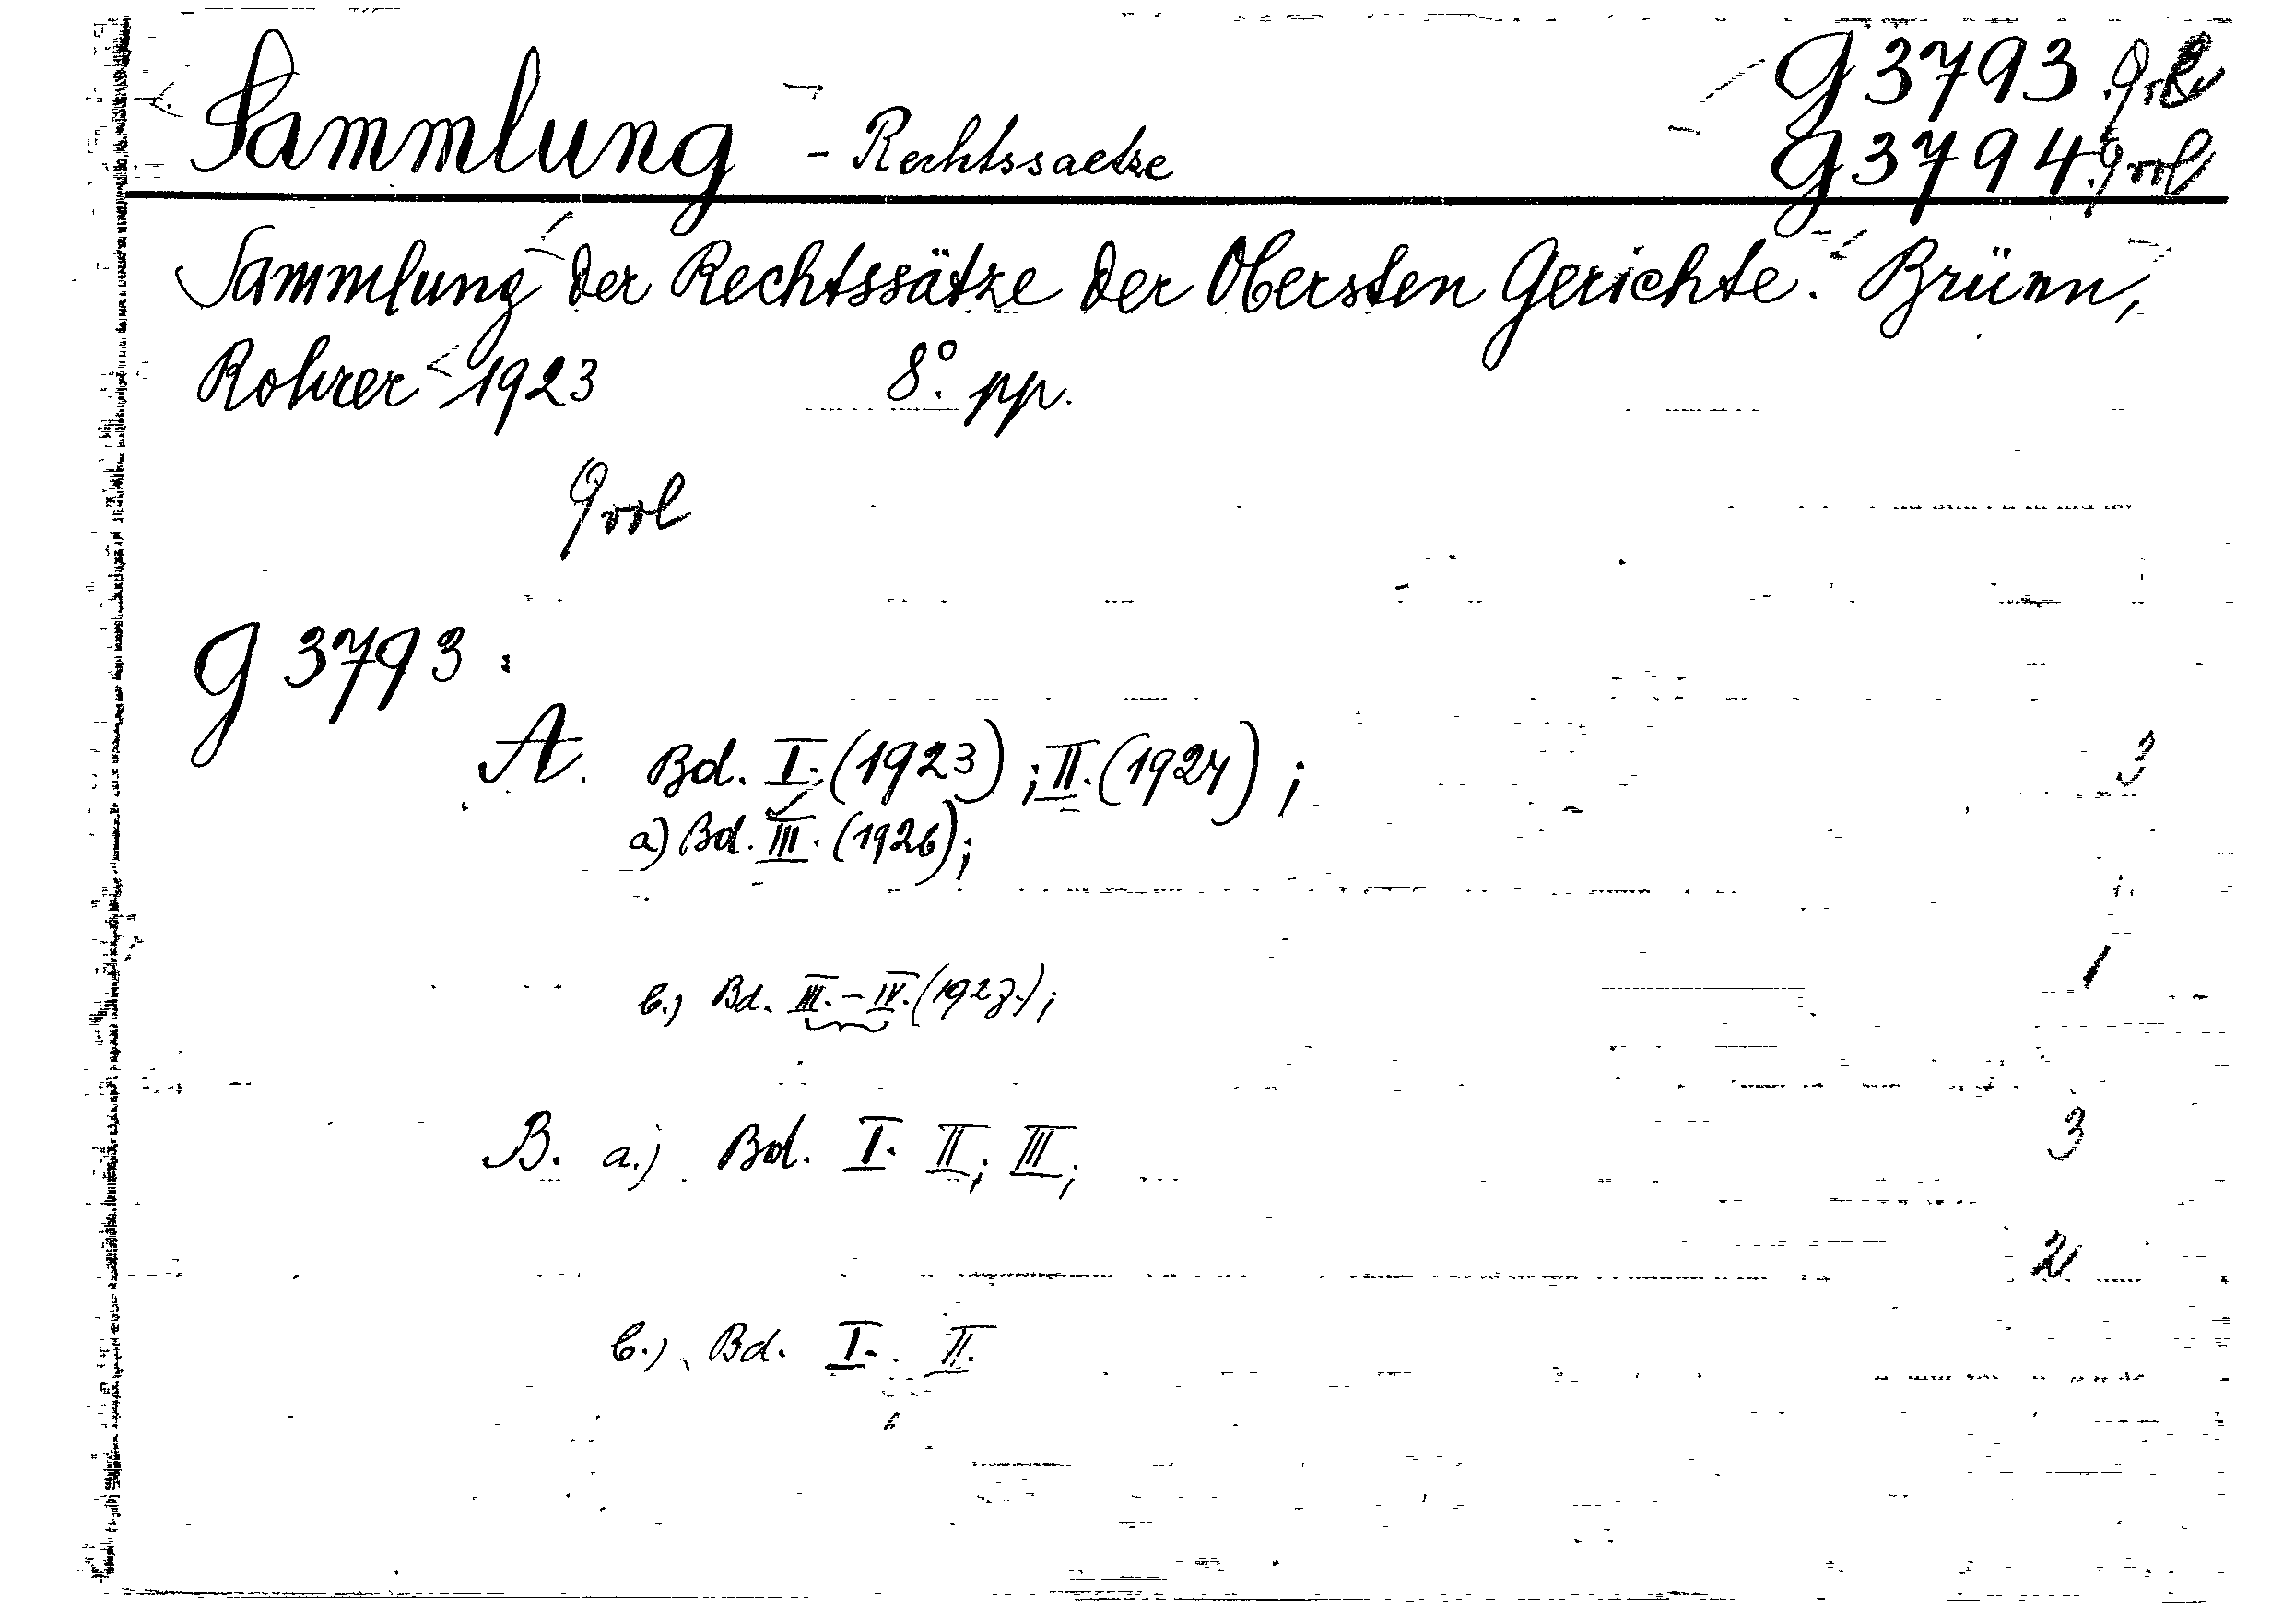 G 3793
Sammlung - Rechtssaetze G 3794
Sammlung der Rechtssätze der Obersten Gerichte. Brünn,
Rohrer 1923 8°. pp.
G 3793:
A. Bd. I. (1923); II. (1924); 3
a) Bd. III. (1926);
1
b.) Bd. III. - IV. (1927.);
B. a.) Bd. I. II; III; 3
2
b.) Bd. I. II.